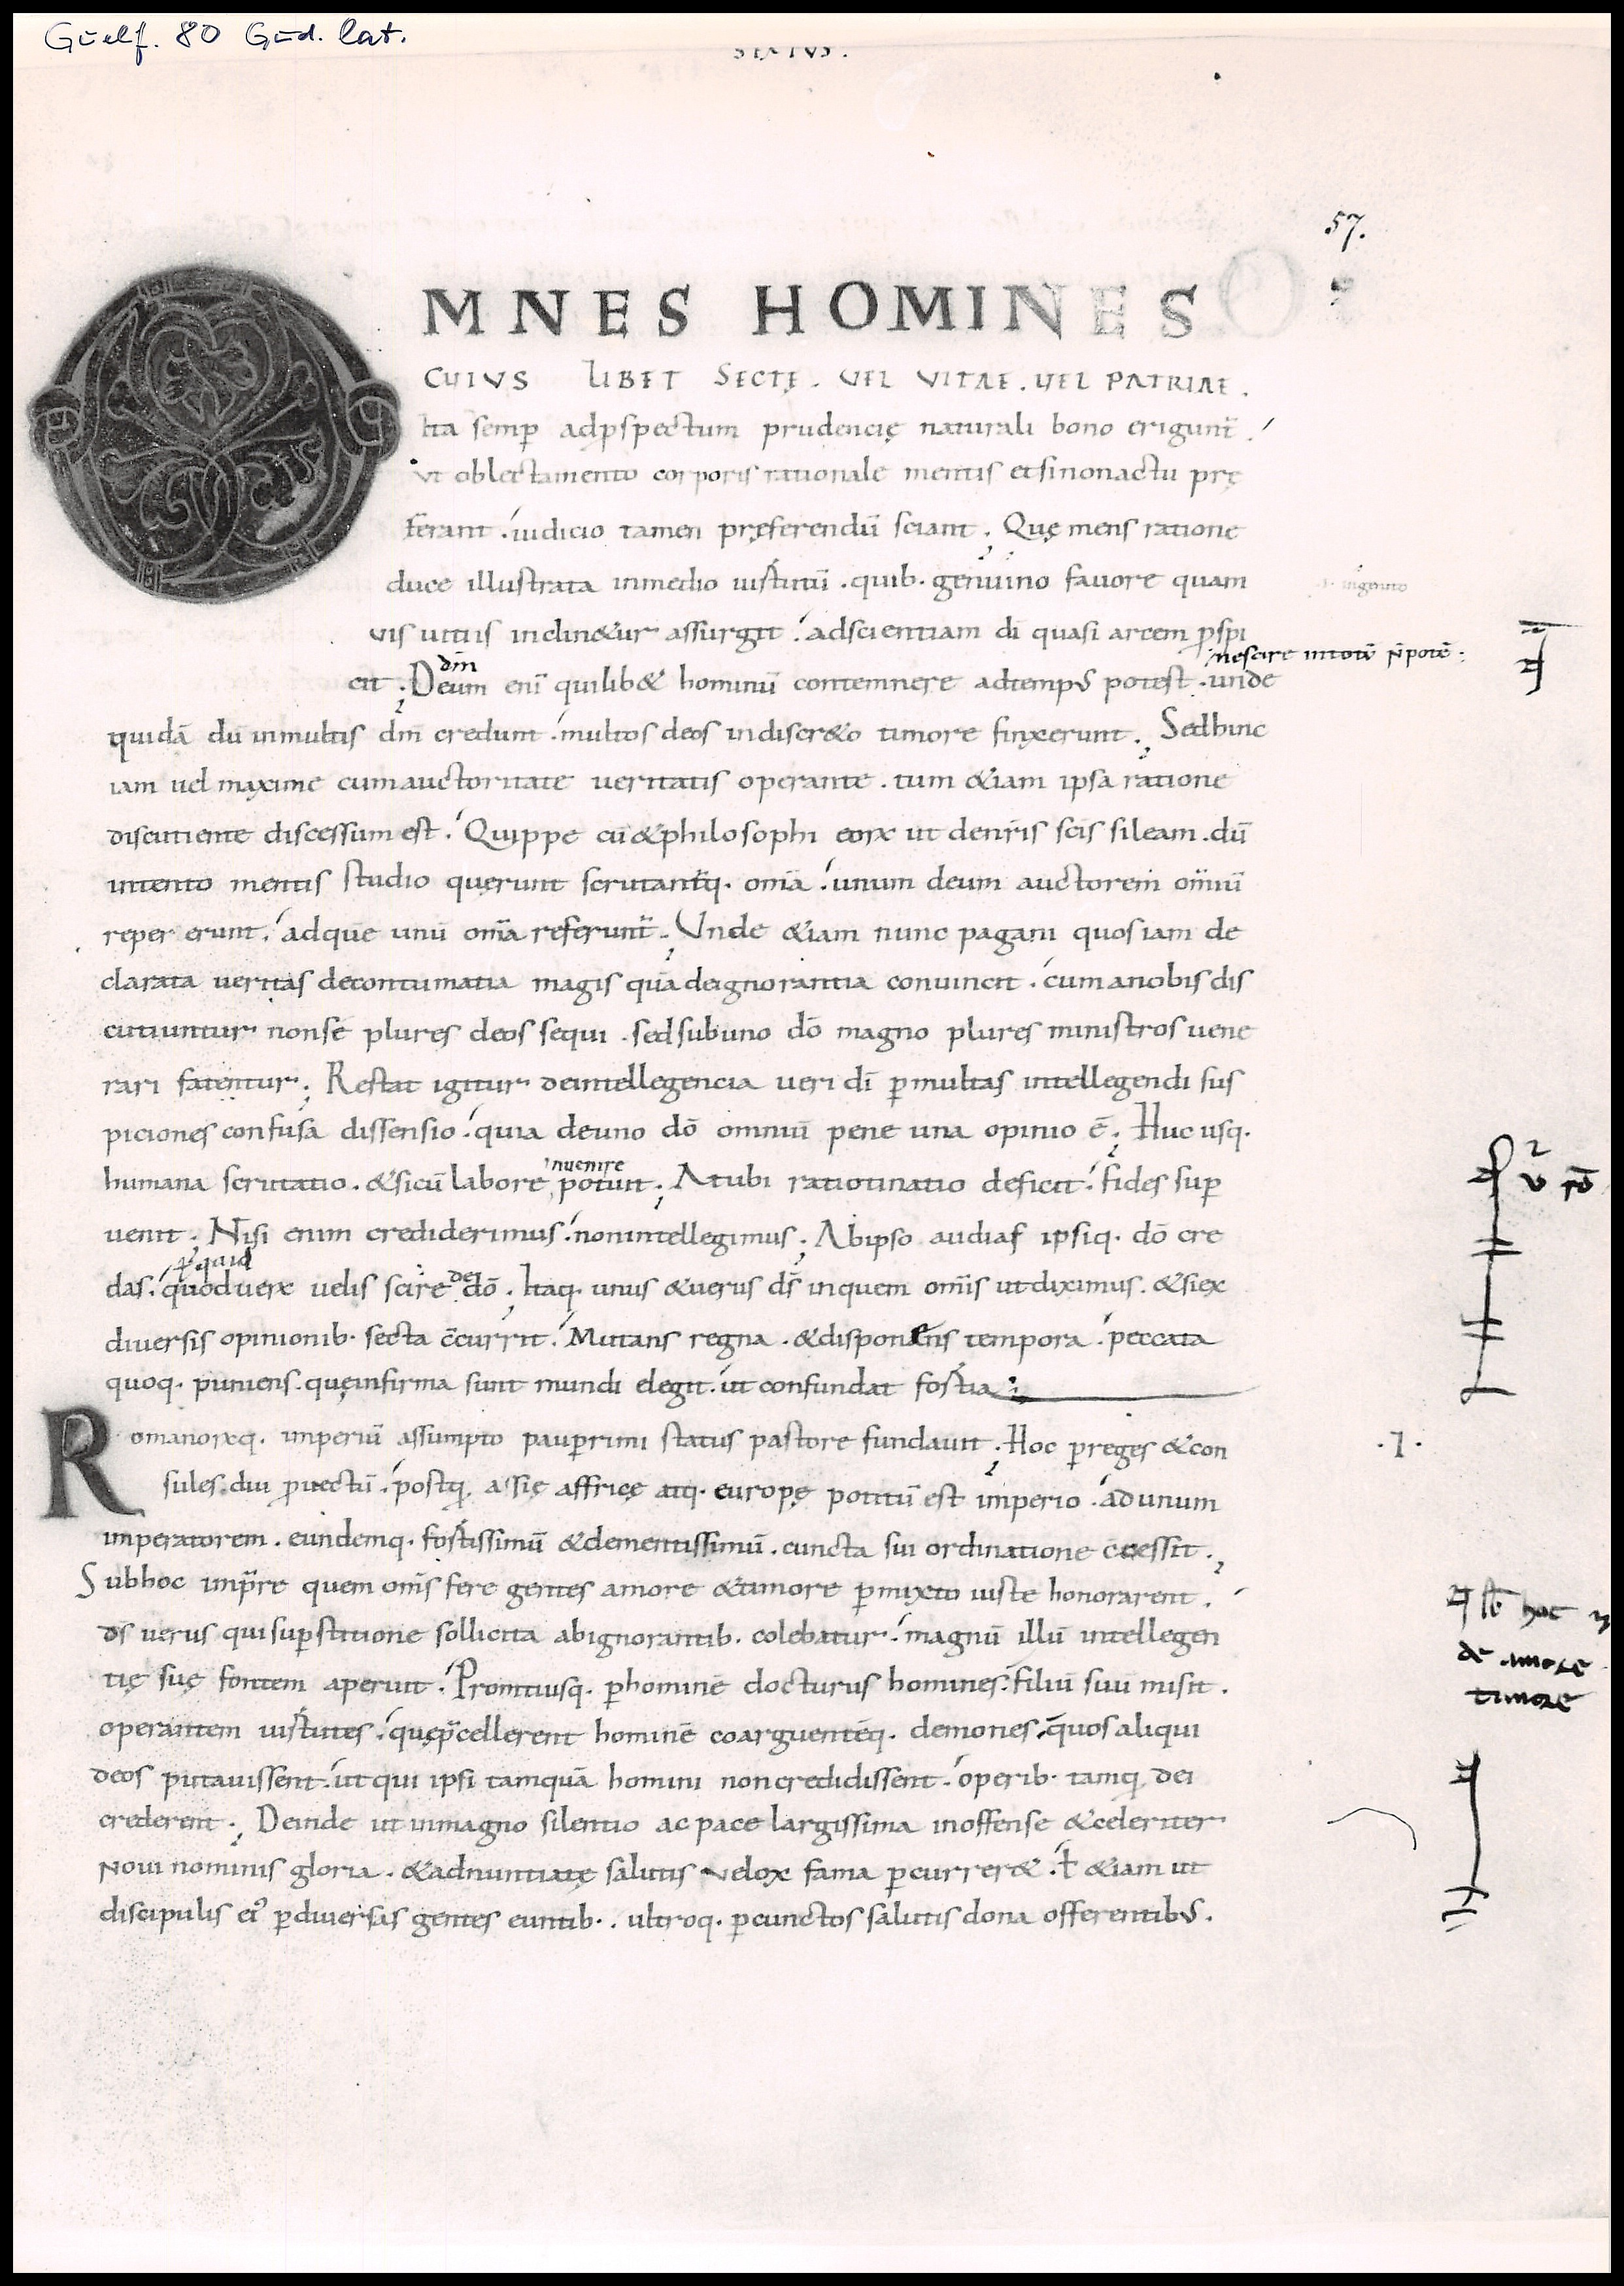 Guelf. 80 Gud. lat.
SEXTUS.
57.
OMNES HOMINES
CUIUS LIBET SECTĘ. VEL VITAE. VEL PATRIAE.
Ita semp̄ adp̄spectum prudencię naturali bono erigunt᷑.
vt oblectamento corporis rationale mentis etsinonactu prę
ferant. iudicio tamen pręferendū sciant. Quę mens ratione
duce illustrata inmedio uirtutū. quib. genuino fauore quam
uis uitiis inclin&ur assurgit. adscientiam di quasi arcem p̄spi
dm̄
nescire intotū n̄ potē.
cit. Deum eni quilib& hominū contemnere adtempus potest. unde
quidā dū inmultis dm̄ credunt. multos deos indiscr&o timore finxerunt. Sedhinc
iam uel maxime cumauctoritate veritatis operante. tum &iam ipsa ratione
discutiente discessum est. Quippe cū &philosophi eorꝝ ut deniris scis sileam. dū
intento mentis studio quęrunt scrutant᷑q. om̄ia. unum deum auctorem om̄iū
reper erunt. adque unū om̄ia referunt᷑. Vnde &iam nunc pagani quosiam de
clarata veritas decontumatia magis quā deignorantia conuincit. cum anobis dis
cutiuntur nonsē plures deos sequi. sedsubuno dō magno plures ministros uene
rari fatentur. Restat igitur deintellegencia ueri dī p̄ multas intellegendi sus
piciones confusa dissensio. quia deuno dō omniū pene una opinio ē. Huc usq.
inuenire
humana scrutatio. &sicū labore potuit. Atubi ratiotinatio deficit. fides sup̄
uenit. Nisi enim crediderimus. nonintellegimus. Abipso audias ipsiq. dō cre
p̄ quid
dei
das. quod uerꝝ uelis scire dō. Itaq. unus &uerus dſ̄ inquem om̄is utdiximus. &siex
diuersis opinionib. secta c̄currit. Mutans regna. &disponens tempora. peccata
quoq. puniens. quęinfirma sunt mundi elegit. ut confundat fortia.
Romanorꝝq. imperiū assumpto paup̄rimi status pastore fundauit. Hoc p̄reges &con
.1.
sules. diu p̄uectū. postq. assię affricę atq. europę potitū est imperio. ad unum
imperatorem. eundemq. fortissimū &clementissimū. cuncta sui ordinatione c̄cessit.
Subhoc imp̄re quem om̄s fere gentes amore &timore p̄mixto iuste honorarent.
ds̄ uerus quisup̄stitione sollicita abignorantib. colebatur. magnū illū intellegen
hoc
de amore
timore
tię suę fontem aperuit. Promtiusq. p̄hominē docturus homines. filiū suū misit.
operantem uirtutes. quęp̄cellerent hominē coarguentēq. demones. quos aliqui
deos putauissent. ut qui ipsi tamquā homini noncredidissent. operib. tamq. dei
crederent. Deinde ut inmagno silentio ac pace largissima inoffense &celeriter
Noui nominis gloria. &adnuntiatę salutis uelox fama p̄currer&. ł &iam ut
discipulis ei᷒ p̄diuersas gentes euntib. ultroq. p̄cunctos salutis dona offerentibus.